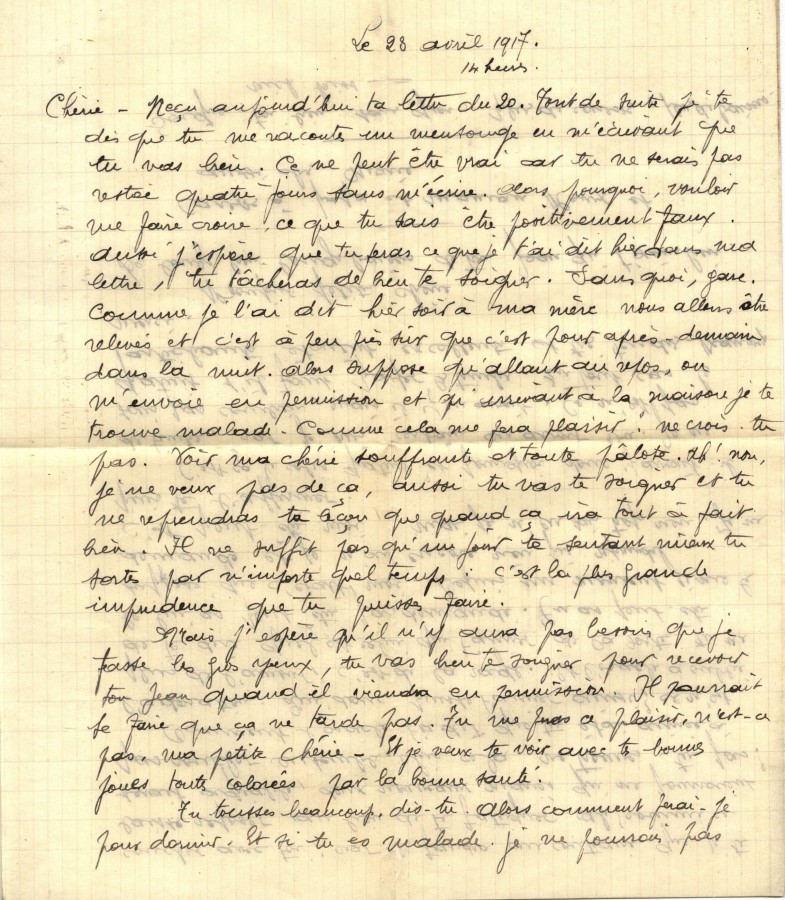 Le 28 avril 1917.
14 heures.
Chérie - Reçu aujourd'hui ta lettre du 20. Tout de suite, je te
dis que tu me racontes un mensonge en m'écrivant que
tu vas bien. Ce ne peut être vrai car tu ne serais pas
restée quatre jours sans m'écrire. Alors pourquoi, vouloir
me faire croire, ce que tu sais être positivement faux.
Aussi j'espère que tu feras ce que je t'ai dit hier dans ma
lettre, tu tâcheras de bien te soigner. Sans quoi, gare.
Comme je l'ai dit hier soir à ma mère nous allons être
relevés et c'est à peu près sûr que c'est pour après-demain
dans la nuit. Alors suppose qu'allant au repos, on
m'envoie en permission et qu'arrivant à la maison je te
trouve malade. Comme cela me fera plaisir! ne crois-tu
pas. Voir ma chérie souffrante et toute pâlote. Ah! non,
je ne veux pas de ça, aussi tu vas te soigner et tu
ne reprendras ta leçon que quand ça ira tout à fait
bien. Il ne suffit pas qu'un jour te sentant mieux tu
sortes par n'importe quel temps: c'est la plus grande
imprudence que tu puisses faire.
Mais j'espère qu'il n'y aura pas besoin que je
fasse les gros yeux, tu vas bien te soigner pour recevoir
ton Jean quand il viendra en permission. Il pourrait
se faire que ça ne tarde pas. Tu me feras ce plaisir, n'est-ce
pas, ma petite chérie - Et je veux te voir avec te bonnes
joues toutes colorées par la bonne santé.
Tu tousses beaucoup, dis-tu. Alors comment ferai-je
pour dormir. Et si tu es malade, je ne pourrais pas